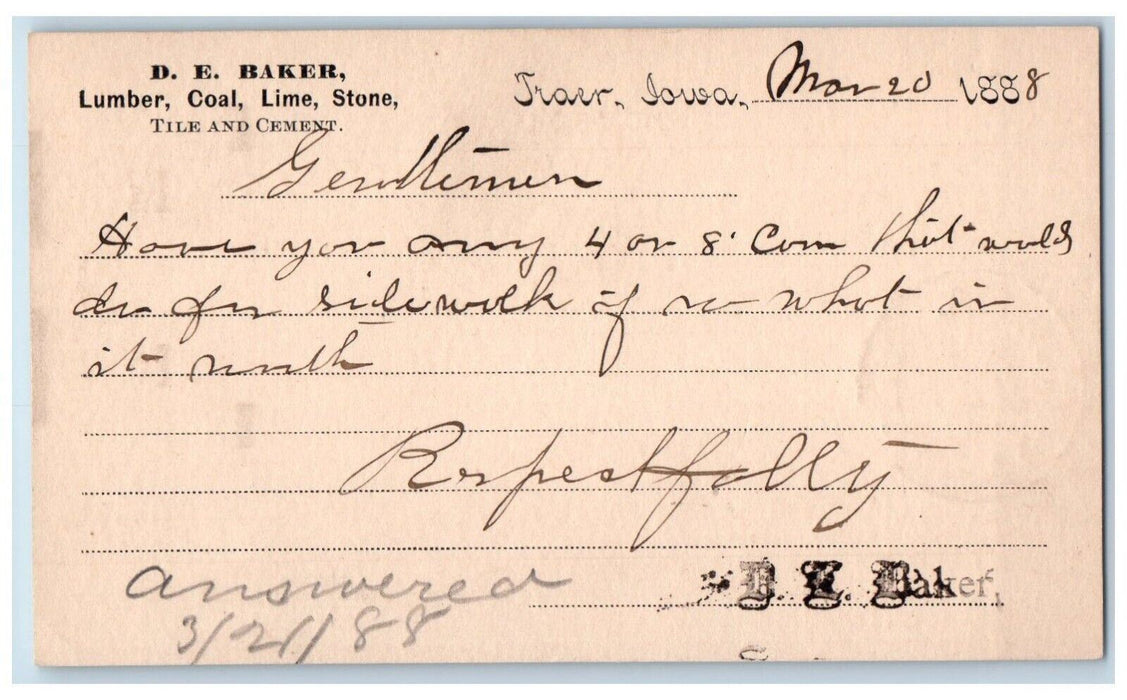 D. E. BAKER,
Lumber, Coal, Lime, Stone,
TILE AND CEMENT.
Traer, Iowa, Mar 20 1888
Gentlemen
Have you any 4 or 8' Com that would
do for sidewalk if so what is
it worth
Respectfully
D. E. Baker,
answered
3/21/88